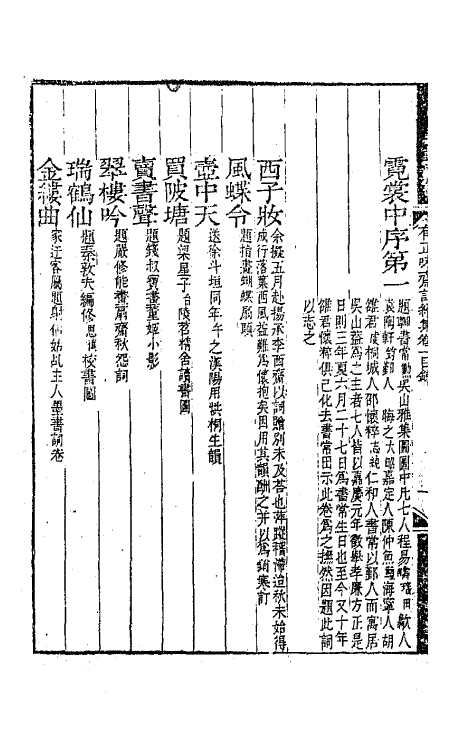 霓裳中序第一
題鄭書常勳吳山雅集圖圖中凡七人程易疇瑤田歙人
袁陶軒鈞鄞人 晦之大昭嘉定人陳仲魚鱣海寧人胡
雒君虔桐城人邵懷粹志純仁和人書常以鄞人而寓居
吳山益爲之主者七人皆以嘉慶元年徵舉孝廉方正是
日則三年夏六月二十七日爲書常生日也至今又十年
雒君懷粹俱已化去書常田示此卷爲之撫然因題此詞
以志之
西子妝
余擬五月赴揚承李西齋以詞贈別未及荅也萍蹤稽滯迨秋末始得
成行落葉西風益難爲懷抱矣因用其韻酬之并以爲消寒訂
風蝶令
題指畫蝴蝶扇頭
壺中天
送徐斗垣同年午之漢陽用洪桐生韻
買陂塘
題梁星子治陵茗精舍讀書圖
賣書聲
題錢叔寶畫董姬小影
翠樓吟
題嚴修能畫扇齋秋怨詞
瑞鶴仙
題秦敦夫編修恩復校書圖
金縷曲
家迂客屬題射仙姑乩主人墨書詞卷
有正味齋詞續集卷二目錄